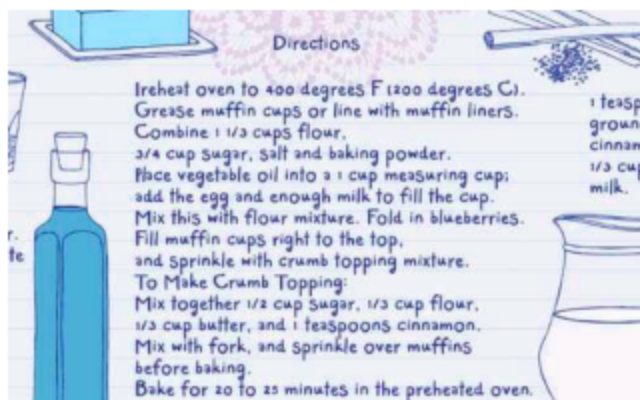 Directions
Preheat oven to 400 degrees F (200 degrees C).
Grease muffin cups or line with muffin liners.
Combine 1 1/3 cups flour,
3/4 cup sugar, salt and baking powder.
Place vegetable oil into a 1 cup measuring cup;
add the egg and enough milk to fill the cup.
Mix this with flour mixture. Fold in blueberries.
Fill muffin cups right to the top,
and sprinkle with crumb topping mixture.
To Make Crumb Topping:
Mix together 1/2 cup sugar, 1/3 cup flour,
1/3 cup butter, and 1 teaspoons cinnamon.
Mix with fork, and sprinkle over muffins
before baking.
Bake for 20 to 25 minutes in the preheated oven.
1 teasp
groun
cinnam
1/3 cup
milk.
r.
te